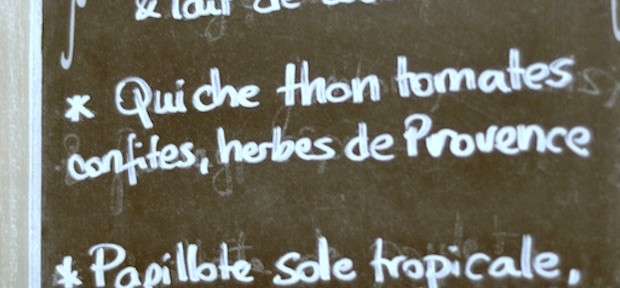 & lait de
* Quiche thon tomates
confites, herbes de Provence
* Papillote sole tropicale,